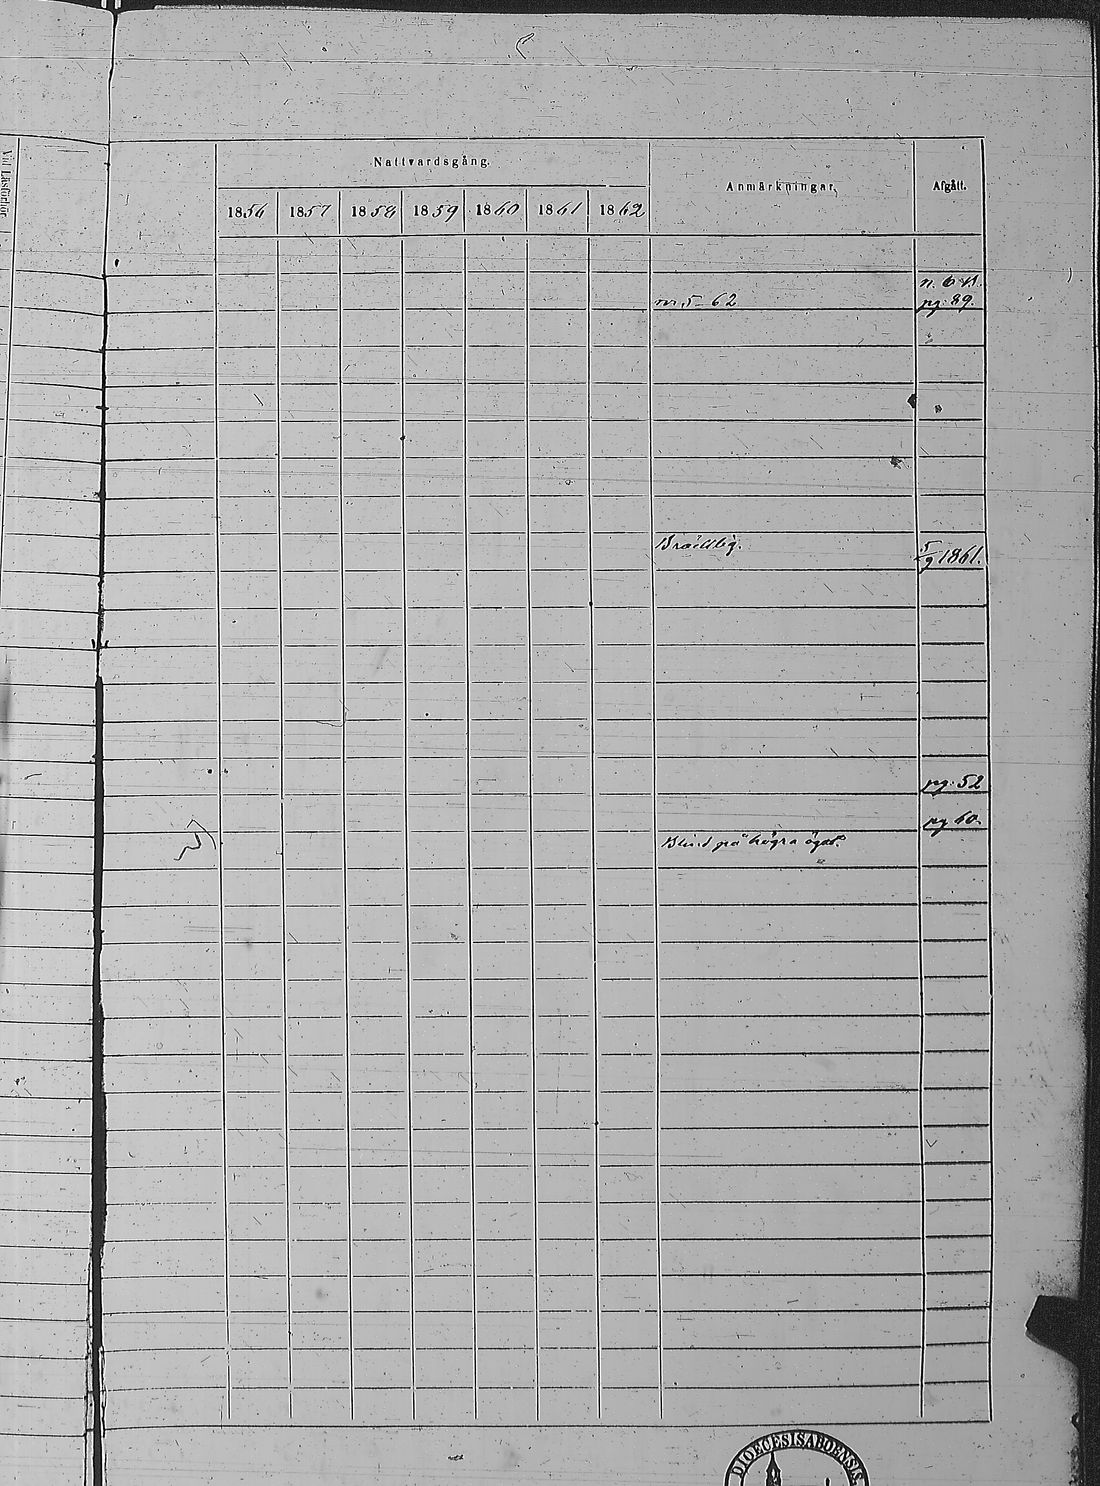 Vid Läsförhör
Nattvardsgång.
Anmärkningar.
Afgått.
1856 1857 1858 1859 1860 1861 1862
n. 6 
nr. 5-62 pg: 89.
Bräcklig.
5/9 1861.
pg: 52
pg 60.
Blind på högra ögat.
DIOECESIS ABOENSIS